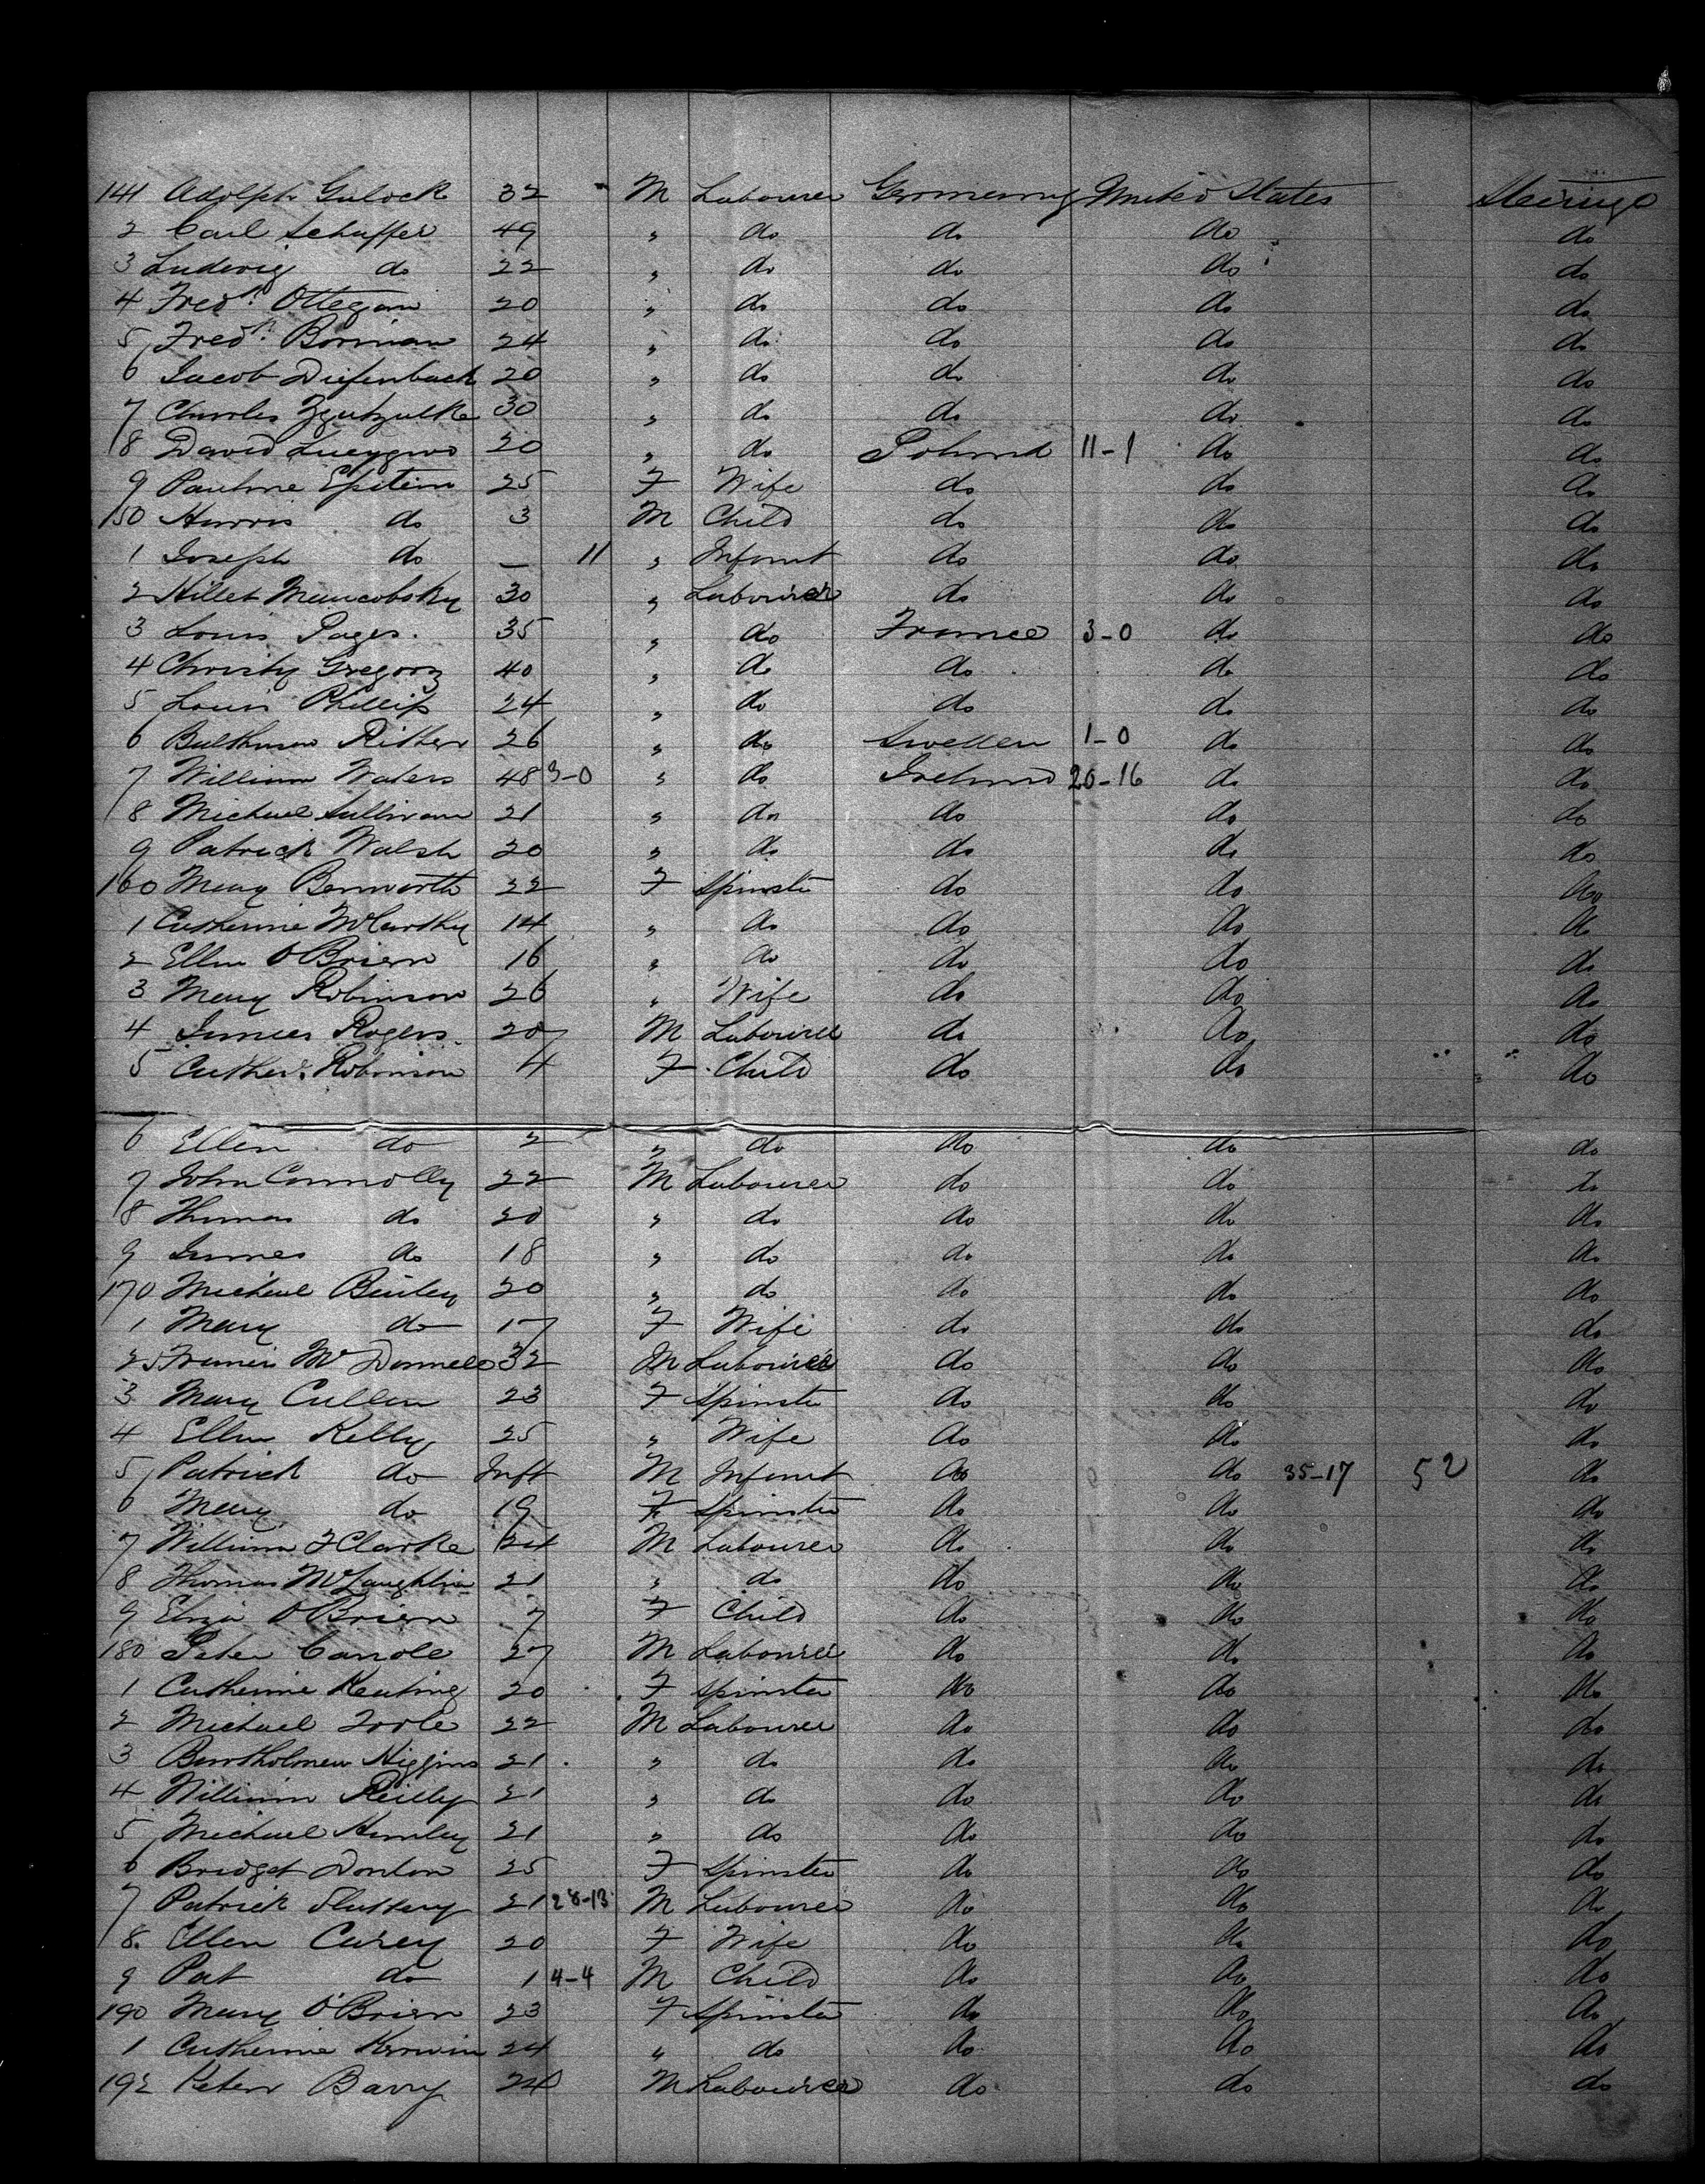 141 Adolph Gulock 32 M Labourer Germany United States Steerage
2 Carl Schaffer 49 " do do do do
3 Ludewig do 22 " do do do do
4 Fredk. Ottegan 20 " do do do do
5 Fredk. Borman 24 " do do do do
6 Jacob Diefenback 20 " do do do do
7 Charles 30 " do do do do
8 David 20 " do Poland 11-1 do do
9 Pauline Epstein 25 F Wife do do do
150 Harris do 3 M Child do do do
1 Joseph do — 11 " Infant do do do
2 Hillet 30 " Labourer do do do
3 Louis Pages. 35 " do France 3-0 do do
4 Christy Gregory 40 " do do do do
5 Louis Phillip 24 " do do do do
6 Ritter 26 " do Sweden 1-0 do do
7 William Waters 48 3-0 " do Ireland 20-16 do do
8 Michael Sullivan 21 " do do do do
9 Patrick Walsh 20 " do do do do
160 Mary Benworth 22 F Spinster do do do
1 Catherine McCarthy 14 " do do do do
2 Ellen O'Brien 16 " do do do do
3 Mary Robinson 26 " Wife do do do
4 James Rogers 20 M Labourer do do do
5 Cather. Robinson 4 F Child do do do
6 Ellen do 2 " do do do do
7 John Connolly 22 M Labourer do do do
8 Thomas do 20 " do do do do
9 James do 18 " do do do do
170 Michael Bailey 20 " do do do do
1 Mary do 17 F Wife do do do
2 Francis McDonnell 32 M Labourer do do do
3 Mary Cullen 23 F Spinster do do do
4 Ellen Kelly 25 " Wife do do do
5 Patrick do Inft M Infant do do 35-17 52 do
6 Mary do 19 F Spinster do do do
7 William F Clarke 24 M Labourer do do do
8 Thomas McLaughlin 21 " do do do do
9 Eliza O'Brien 7 F Child do do do
180 Peter Carrole 27 M Labourer do do do
1 Catherine Keating 20 F Spinster do do do
2 Michael Toole 22 M Labourer do do do
3 Bartholmew Higgins 21 " do do do do
4 William Reilly 21 " do do do do
5 Michael Hanley 21 " do do do do
6 Bridget Donlon 25 F Spinster do do do
7 Patrick Slattery 21 28-13 M Labourer do do do
8. Ellen Carey 20 F Wife do do do
9 Pat do 1 4-4 M Child do do do
190 Mary O'Brien 23 F Spinster do do do
1 Catherine Kerwin 24 " do do do do
192 Peter Barry 24 M Labourer do do do